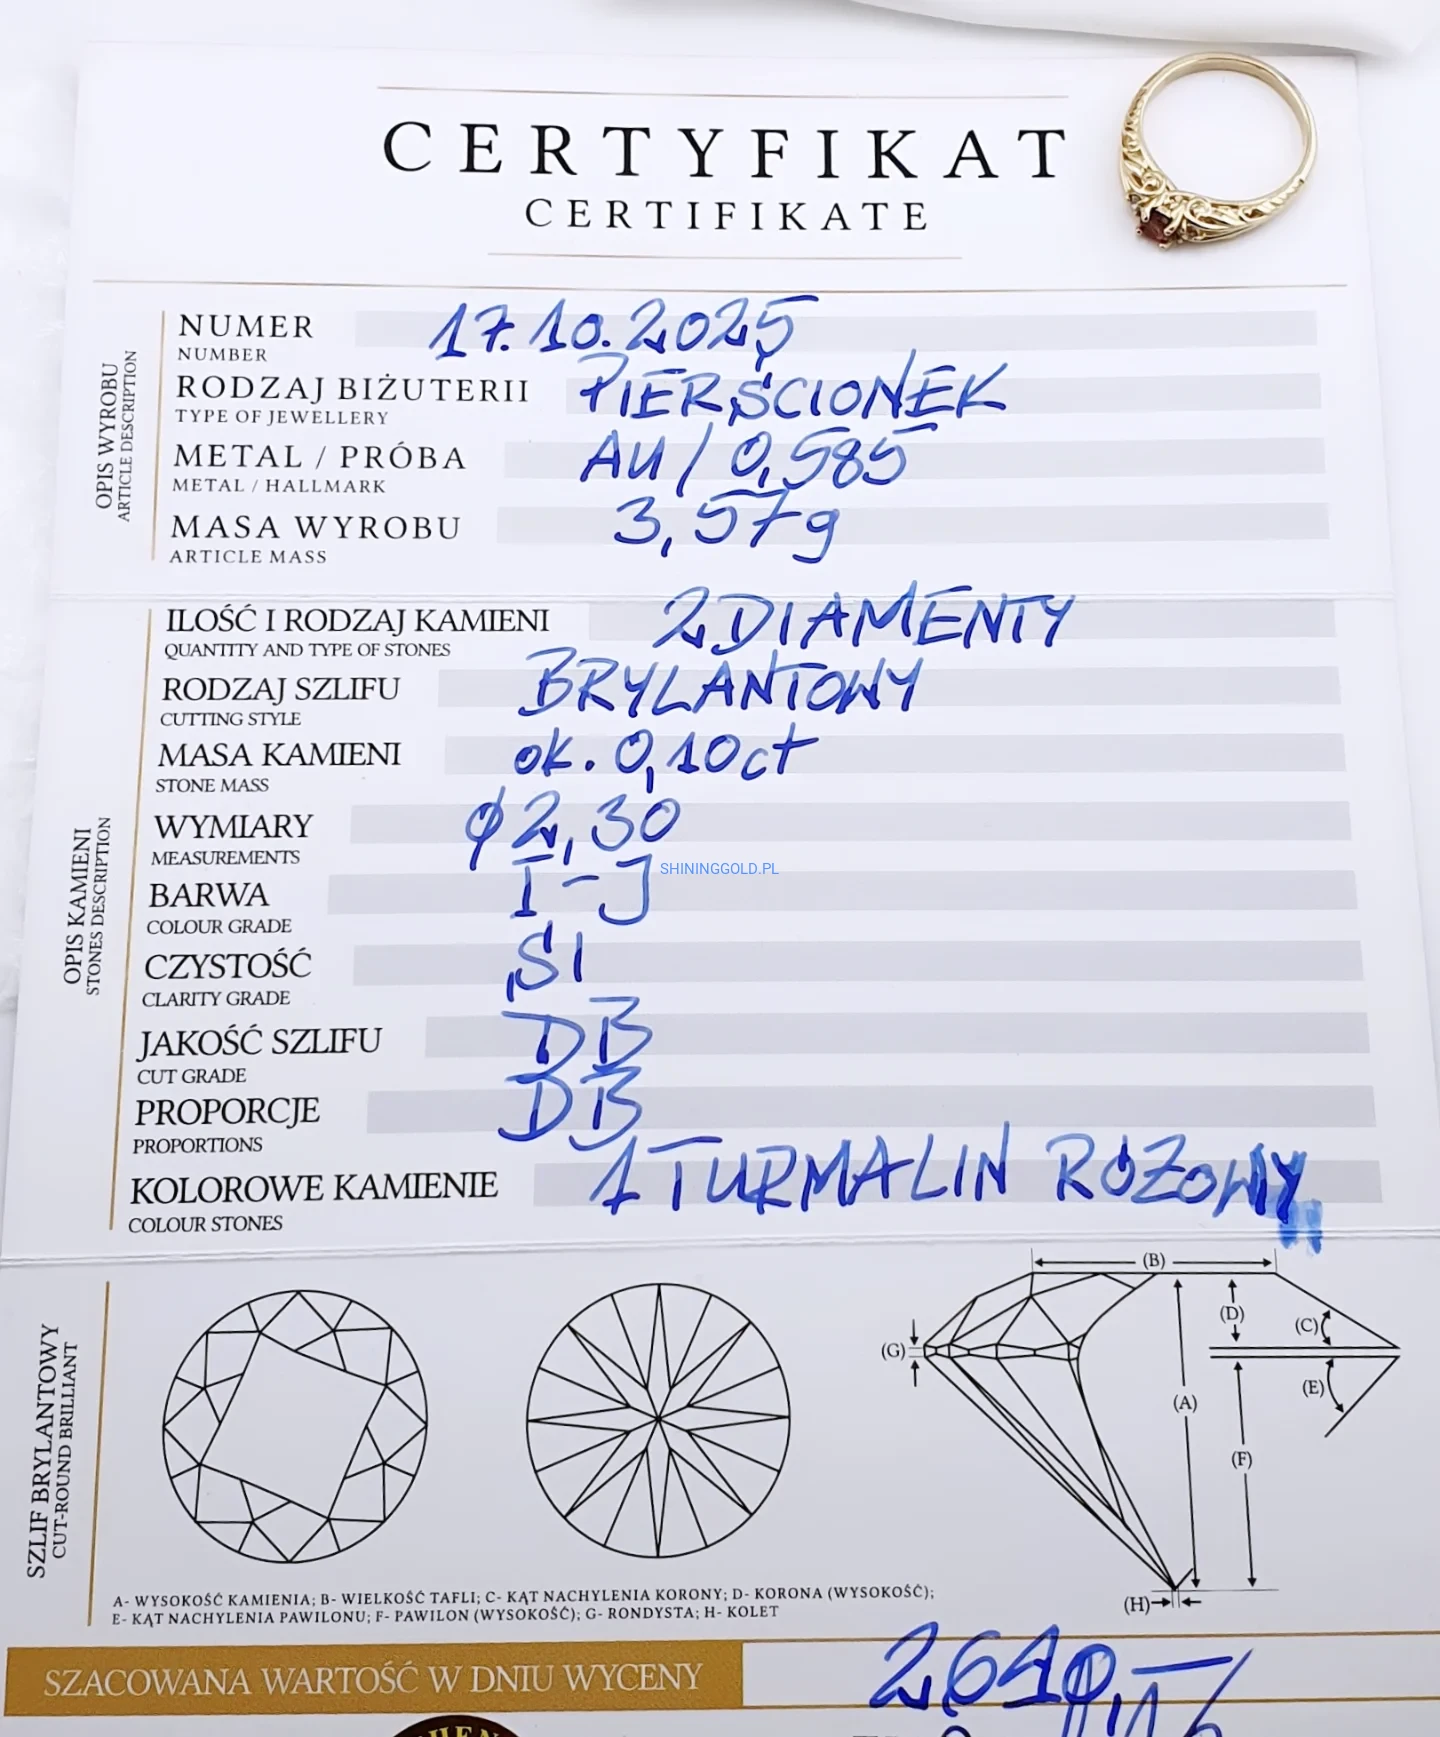 CERTYFIKAT
CERTIFIKATE
OPIS WYROBU
ARTICLE DESCRIPTION
NUMER 17.10.2025
NUMBER
RODZAJ BIŻUTERII PIERŚCIONEK
TYPE OF JEWELLERY
METAL / PRÓBA AU / 0,585
METAL / HALLMARK
MASA WYROBU 3,57g
ARTICLE MASS
OPIS KAMIENI
STONES DESCRIPTION
ILOŚĆ I RODZAJ KAMIENI 2 DIAMENTY
QUANTITY AND TYPE OF STONES
RODZAJ SZLIFU BRYLANTOWY
CUTTING STYLE
MASA KAMIENI ok. 0,10ct
STONE MASS
WYMIARY ϕ2,30
MEASUREMENTS
SHININGGOLD.PL
BARWA I-J
COLOUR GRADE
CZYSTOŚĆ SI
CLARITY GRADE
JAKOŚĆ SZLIFU DB
CUT GRADE
PROPORCJE DB
PROPORTIONS
KOLOROWE KAMIENIE 1 TURMALIN RÓŻOWY
COLOUR STONES
SZLIF BRYLANTOWY
CUT-ROUND BRILLIANT
(B)
(D)
(C)
(G)
(E)
(A)
(F)
(H)
A- WYSOKOŚĆ KAMIENIA; B- WIELKOŚĆ TAFLI; C- KĄT NACHYLENIA KORONY; D- KORONA (WYSOKOŚĆ);
E- KĄT NACHYLENIA PAWILONU; F- PAWILON (WYSOKOŚĆ); G- RONDYSTA; H- KOLET
SZACOWANA WARTOŚĆ W DNIU WYCENY 2610,—